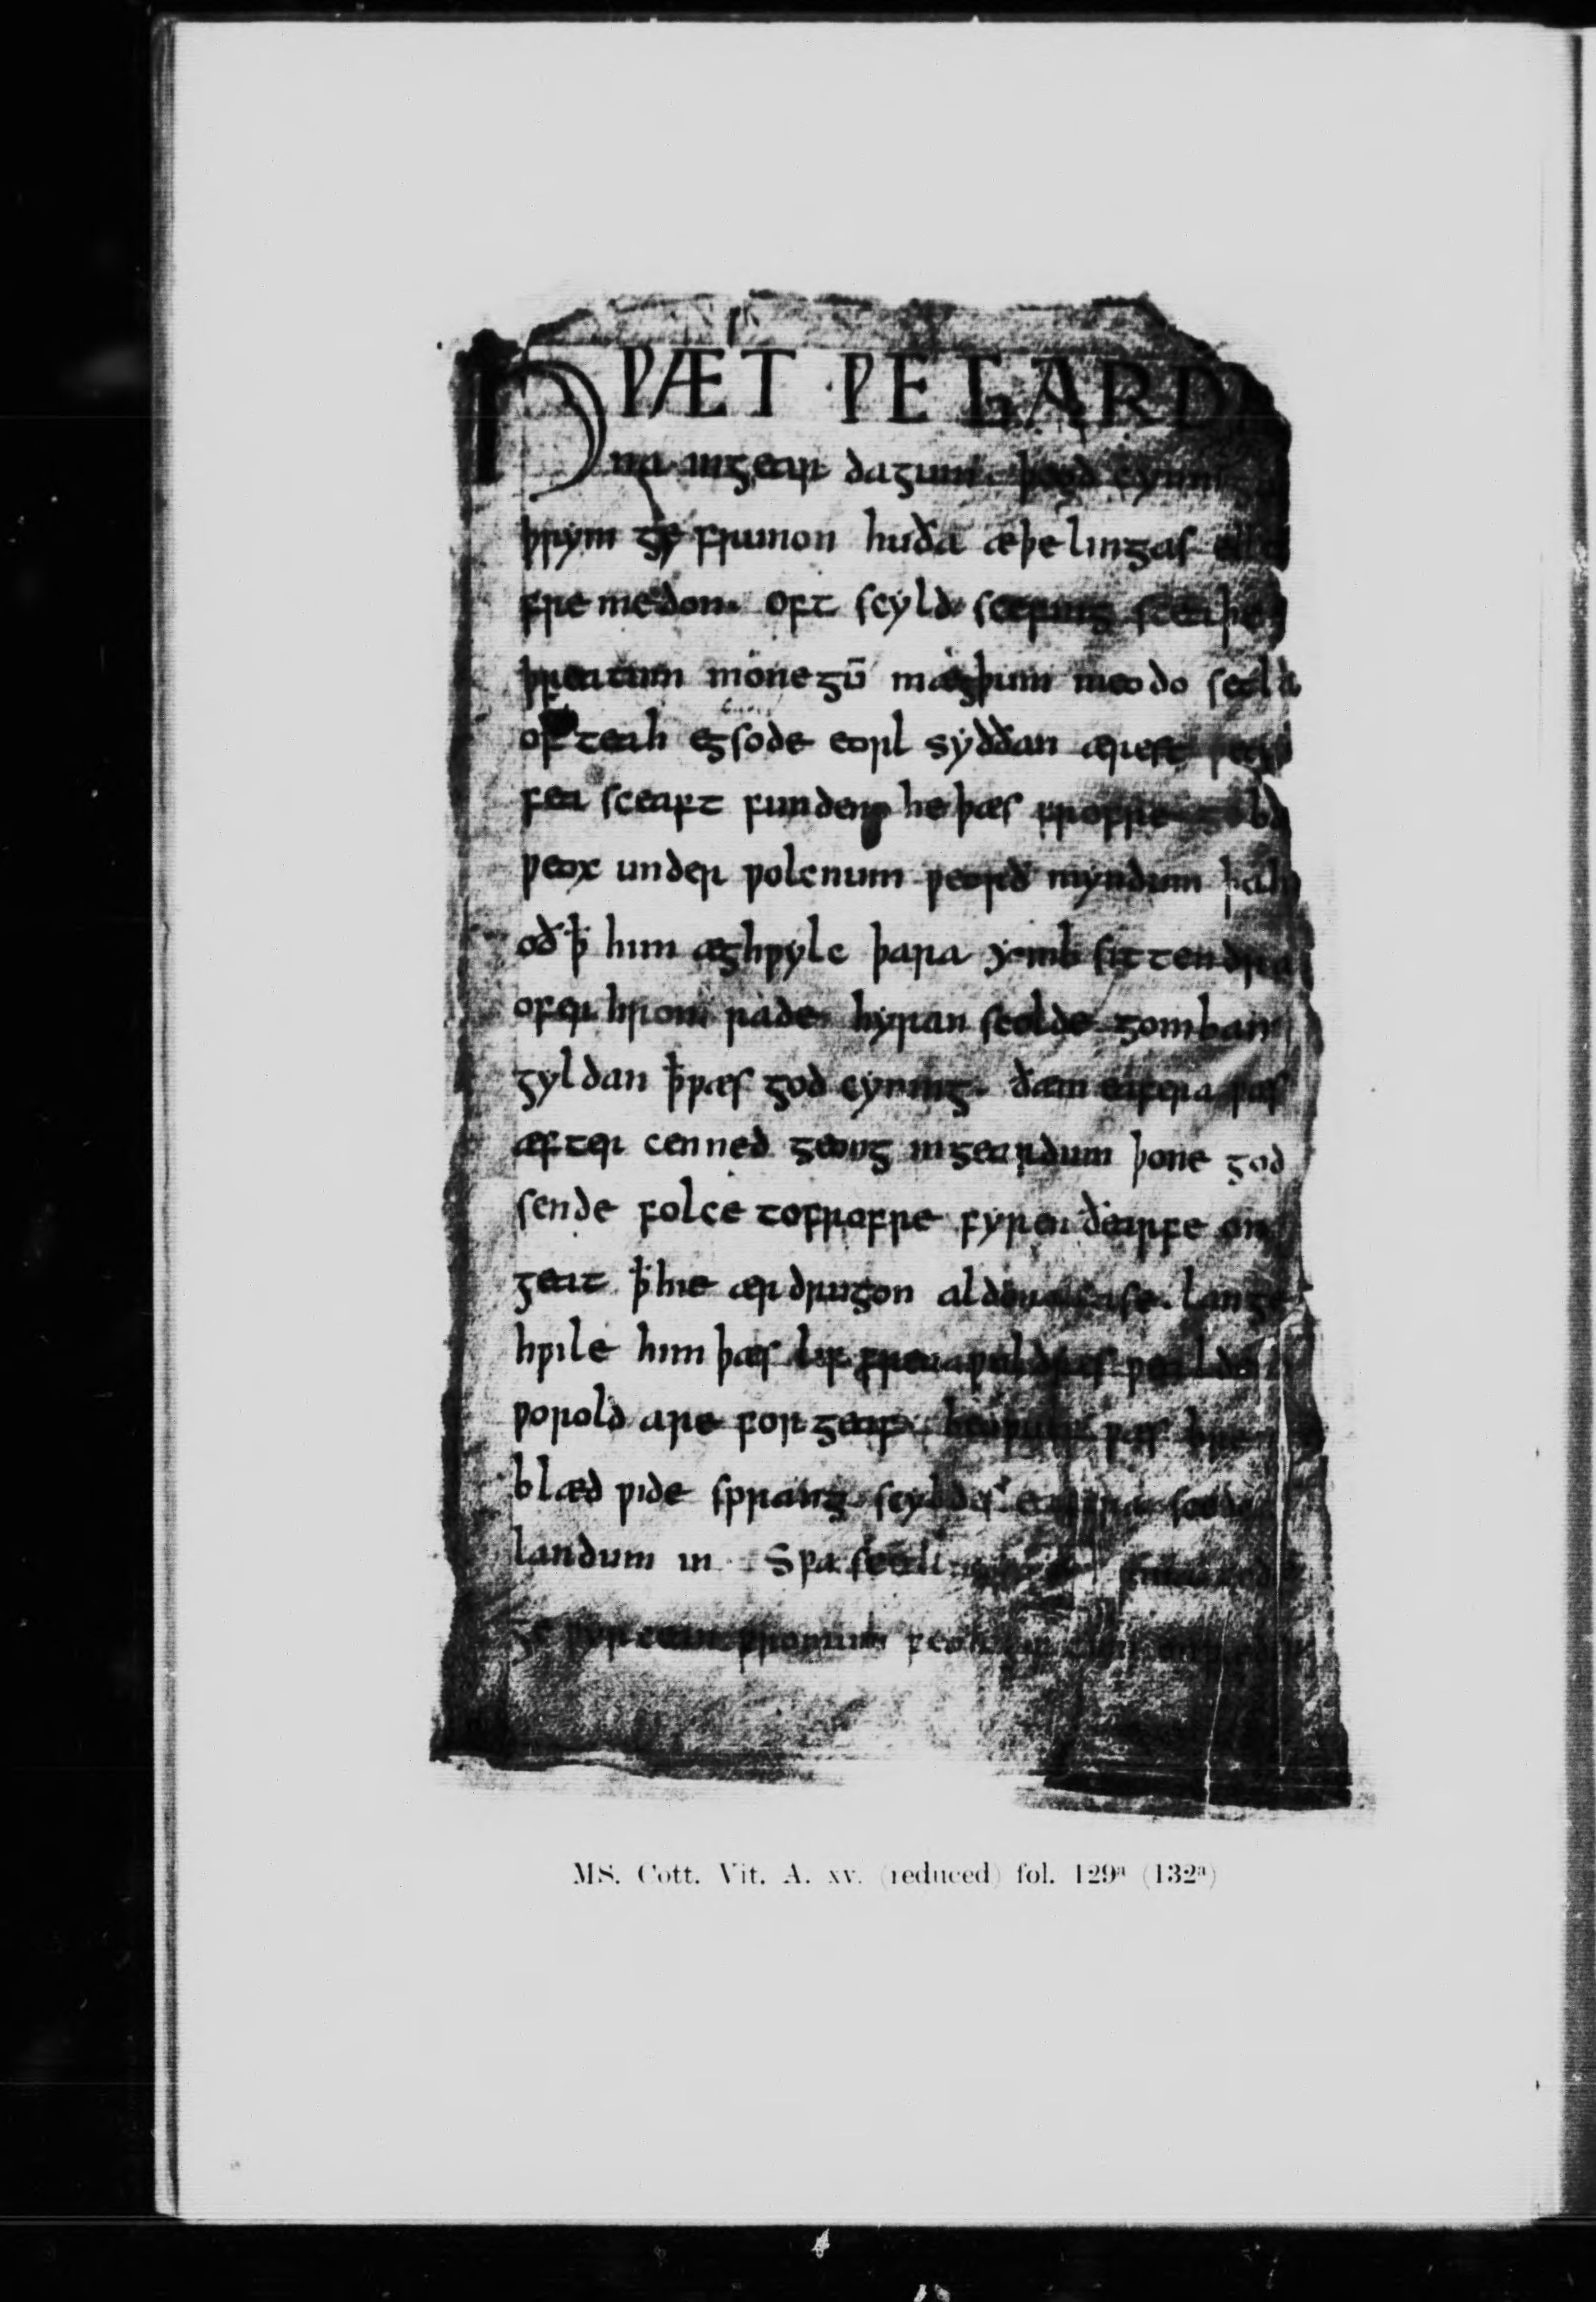 HǷÆT ǷE GARD
na ingear dagum. þeod cyninga
þrym ge frunon huða æþelingas ellen
fremedon. oft scyld scefing sceaþena
þreatum monegū mægþum meodo setla
ofteah egsode eorl syððan ærest ƿearð
fea sceaft funden he þæs frofre gebad
ƿeox under ƿolcnum ƿeorð myndum þah
oð ꝥ him æghƿylc þara ymb sittendra
ofer hron rade hyran scolde gomban
gyldan ꝥ ƿæs god cyning. ðæm eafera ƿæs
æfter cenned geong in geardum þone god
sende folce tofrofre fyren ðearfe on
geat ꝥ hie ær drugon aldor ase. lange
hƿile him þæs lif frea ƿuldres ƿealdend
ƿorold are for geaf. beoƿulf ƿæs breme
blæd ƿide sprang scyldes eafera scede
landum in. Sƿa sceal
ge ƿyrcean fromum feoh giftum
MS. Cott. Vit. A. xv. (reduced) fol. 129ᵃ (132ᵃ)